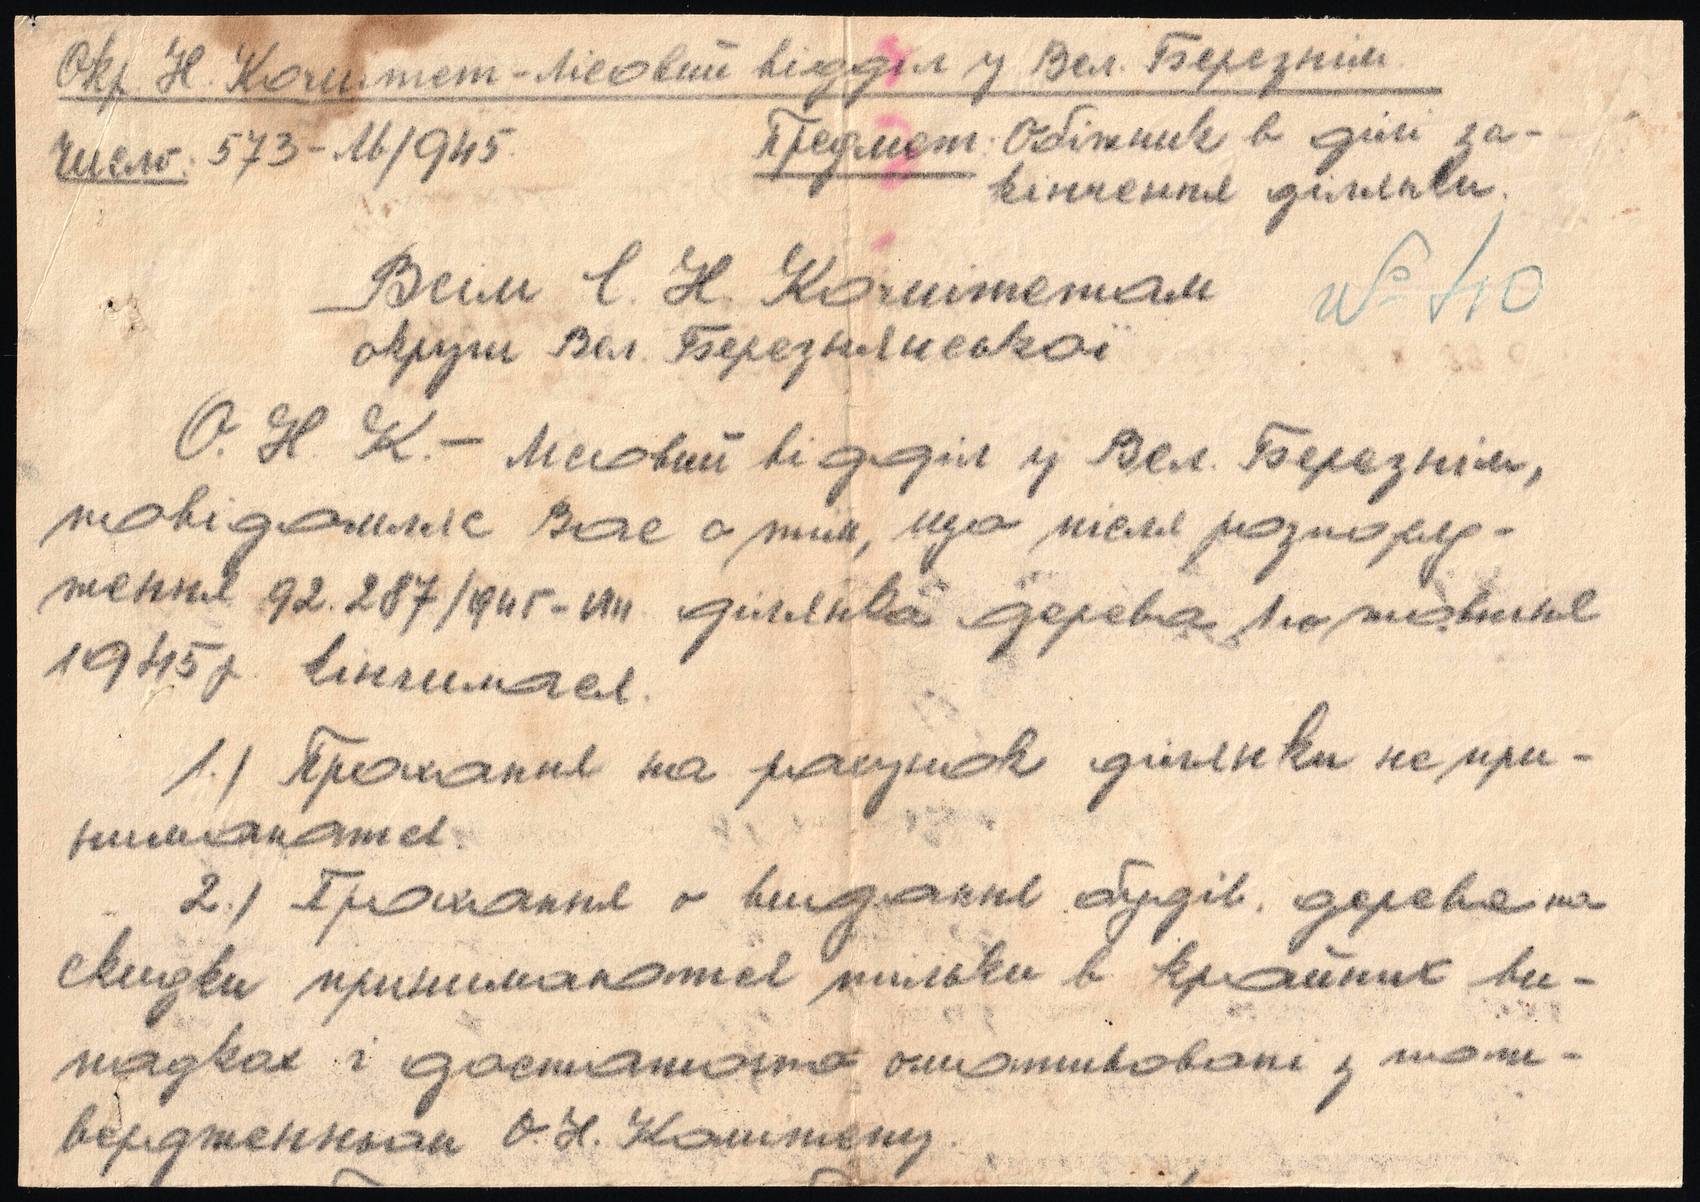 Окр. Н. Комітет - лісовий відділ у Вел. Березнім.
Число: 573-Лб/945. Предмет: Обіжник в ділі за-
кінчення ділянки.
Всім С. Н. Комітетам
№ 40
округи Вел. Березнянської
О. Н. К. - Лісовий відділ у Вел. Березнім,
повідомляє Вас о тім, що після розпоря-
ження 92.287/945- ділянка дерева 1-го жовтня
1945 р. кінчилася.
1.) Прохання на рахунок ділянки не при-
нимаються.
2.) Прохання о видання будів. дерева на
скидки принимаються тільки в крайних ви-
падках і достаточно омотивовані з пот-
вердженньом О. Н. Комітету.